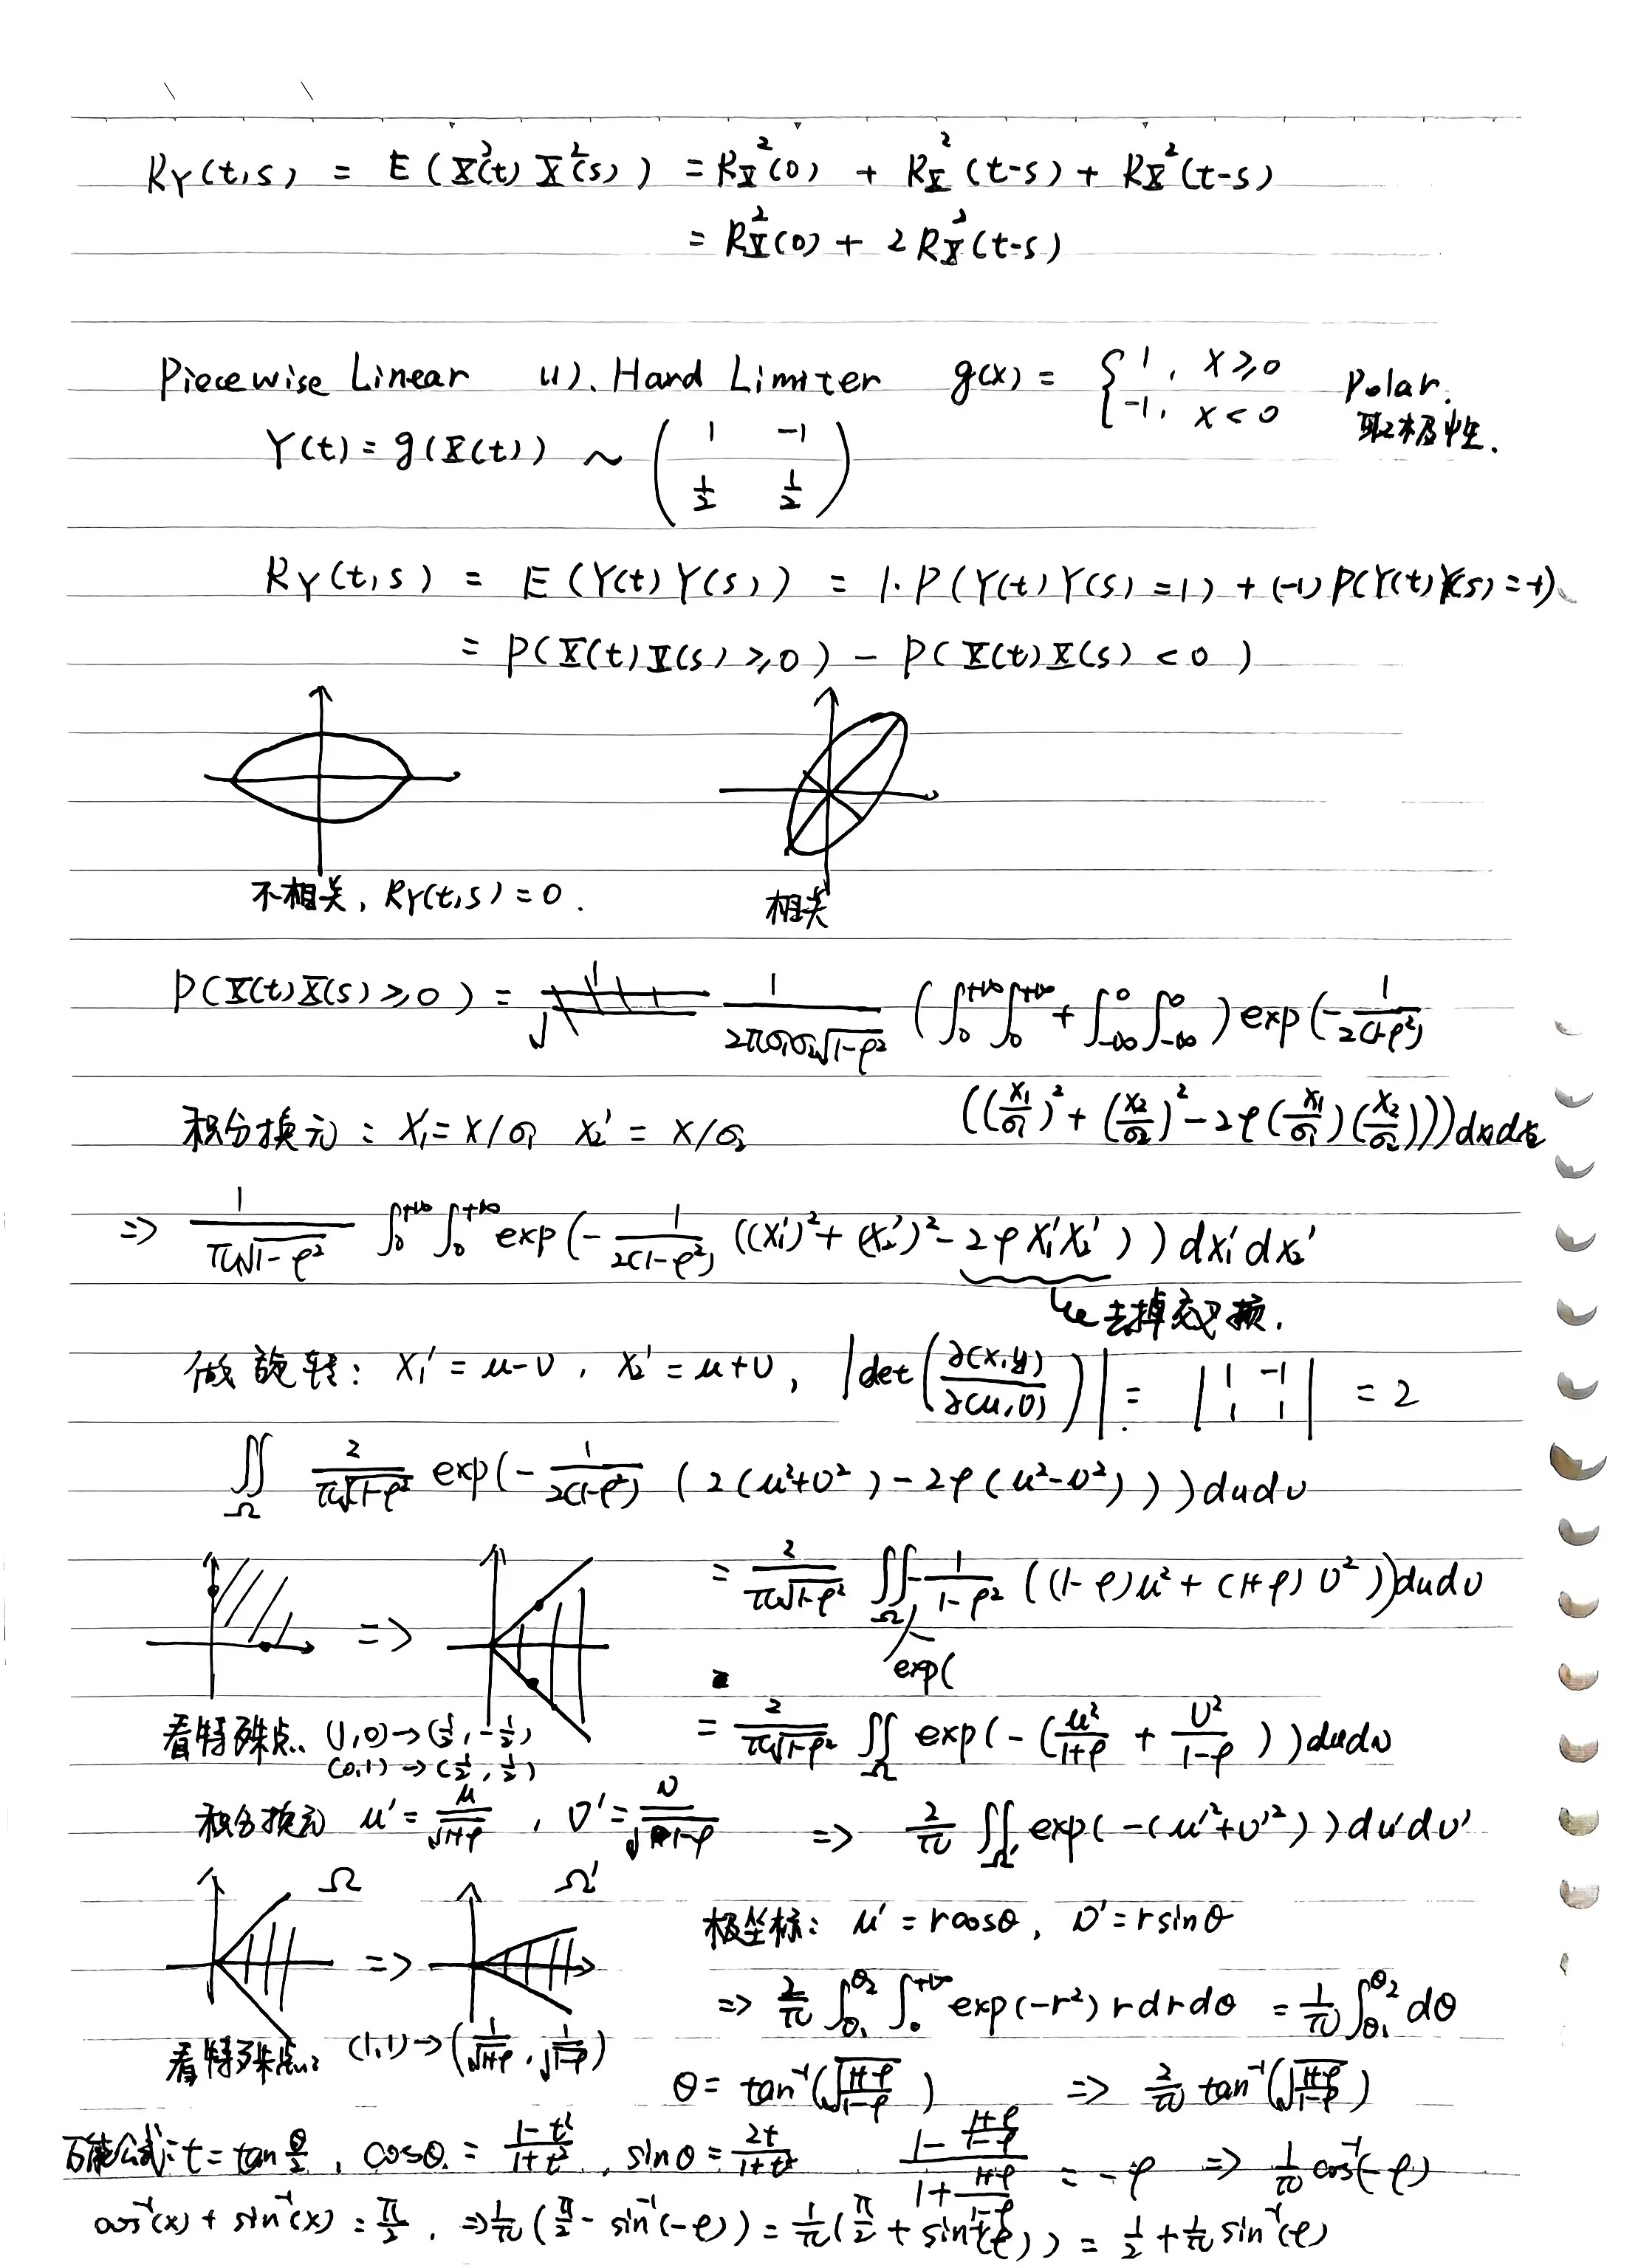 R_Y(t,s) = E(X²(t) X²(s)) = R_X²(0) + R_X²(t-s) + R_X²(t-s)
= R_X²(0) + 2R_X²(t-s)
Piecewise Linear (1). Hard Limiter g(x) = { 1, x≥0 ; -1, x<0 Polar.
取极性.
Y(t) = g(X(t)) ~ ( 1 -1 ; 1/2 1/2 )
R_Y(t,s) = E(Y(t)Y(s)) = 1·P(Y(t)Y(s)=1) + (-1)P(Y(t)Y(s)=-1)
= P(X(t)X(s)≥0) - P(X(t)X(s)<0)
不相关, R_Y(t,s)=0. 相关
P(X(t)X(s)≥0) = 1/(2πσ₁σ₂√(1-ρ²)) (∫₀^{+∞}∫₀^{+∞} + ∫_{-∞}^0∫_{-∞}^0) exp(-1/(2(1-ρ²))
((x₁/σ₁)² + (x₂/σ₂)² - 2ρ(x₁/σ₁)(x₂/σ₂)))dx₁dx₂
积分换元: x₁=x/σ₁ x₂' = x/σ₂
=> 1/(π√(1-ρ²)) ∫₀^{+∞}∫₀^{+∞} exp(-1/(2(1-ρ²)) ((x₁')² + (x₂')² - 2ρx₁'x₂'))dx₁'dx₂'
去掉交叉项.
做旋转: x₁' = u-v, x₂' = u+v, |det(∂(x,y)/∂(u,v))| = | 1 -1 ; 1 1 | = 2
∬_Ω 2/(π√(1-ρ²)) exp(-1/(2(1-ρ²)) (2(u²+v²) - 2ρ(u²-v²)))dudv
=> = 2/(π√(1-ρ²)) ∬_Ω -1/(1-ρ²) ((1-ρ)u² + (1+ρ)v²))dudv
exp(
看特殊点. (1,0)→(1/2,-1/2) = 2/(π√(1-ρ²)) ∬_Ω exp(-(u²/(1+ρ) + v²/(1-ρ)))dudv
(0,1)→(1/2,1/2)
积分换元 u' = u/√(1+ρ), v' = v/√(1-ρ) => 2/π ∬_Ω' exp(-(u'²+v'²))du'dv'
Ω => Ω'
极坐标: u' = rcosθ, v' = rsinθ
=> 2/π ∫_{θ₁}^{θ₂} ∫₀^{+∞} exp(-r²) rdrdθ = 1/π ∫_{θ₁}^{θ₂} dθ
看特殊点: (1,1)→(1/√(1+ρ), 1/√(1-ρ))
θ = tan⁻¹(√((1+ρ)/(1-ρ))) => 2/π tan⁻¹(√((1+ρ)/(1-ρ)))
万能公式: t = tan θ/2, cosθ = (1-t²)/(1+t²), sinθ = 2t/(1+t²) (1-(1+ρ)/(1-ρ))/(1+(1+ρ)/(1-ρ)) = -ρ => 1/π cos⁻¹(-ρ)
cos⁻¹(x) + sin⁻¹(x) = π/2, => 1/π(π/2 - sin⁻¹(-ρ)) = 1/π(π/2 + sin⁻¹(ρ)) = 1/2 + 1/π sin⁻¹(ρ)